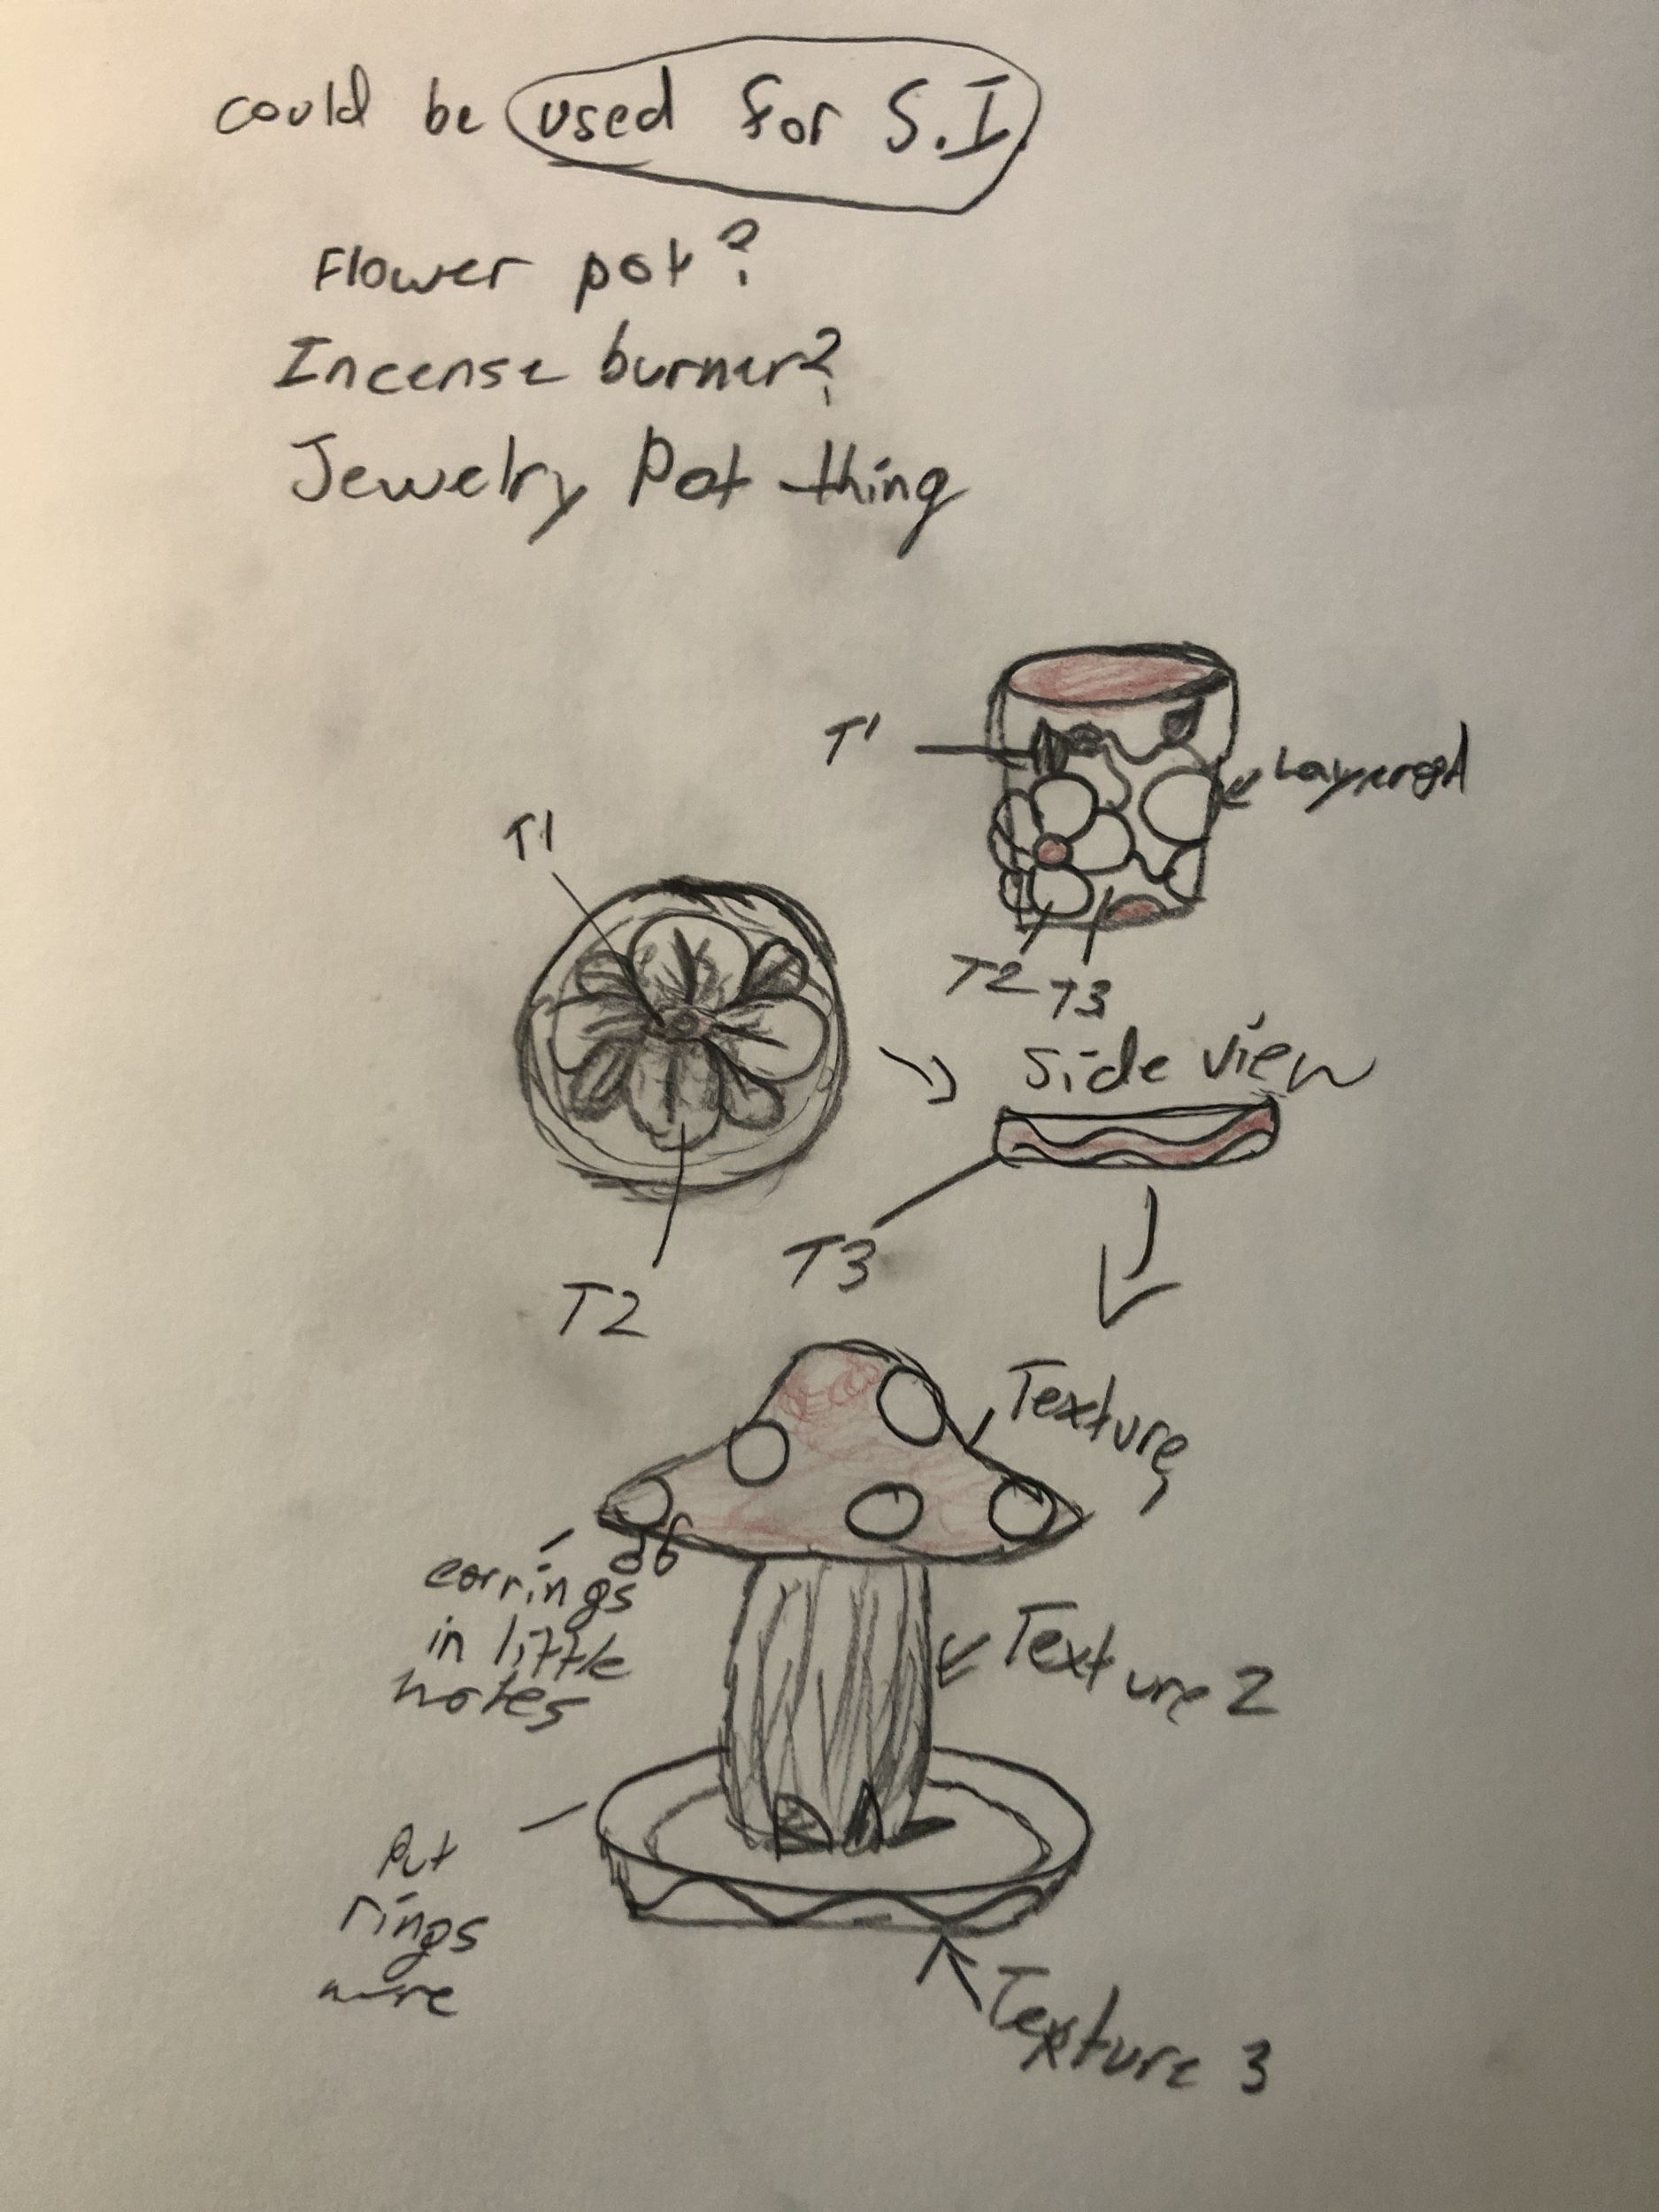 could be used for S.I
Flower pot?
Incense burner?
Jewelry Pot thing
T1
Layered
T1
T2 T3
Side view
T3
T2
Texture,
earrings
in little
holes
Texture 2
Put
rings
Texture 3